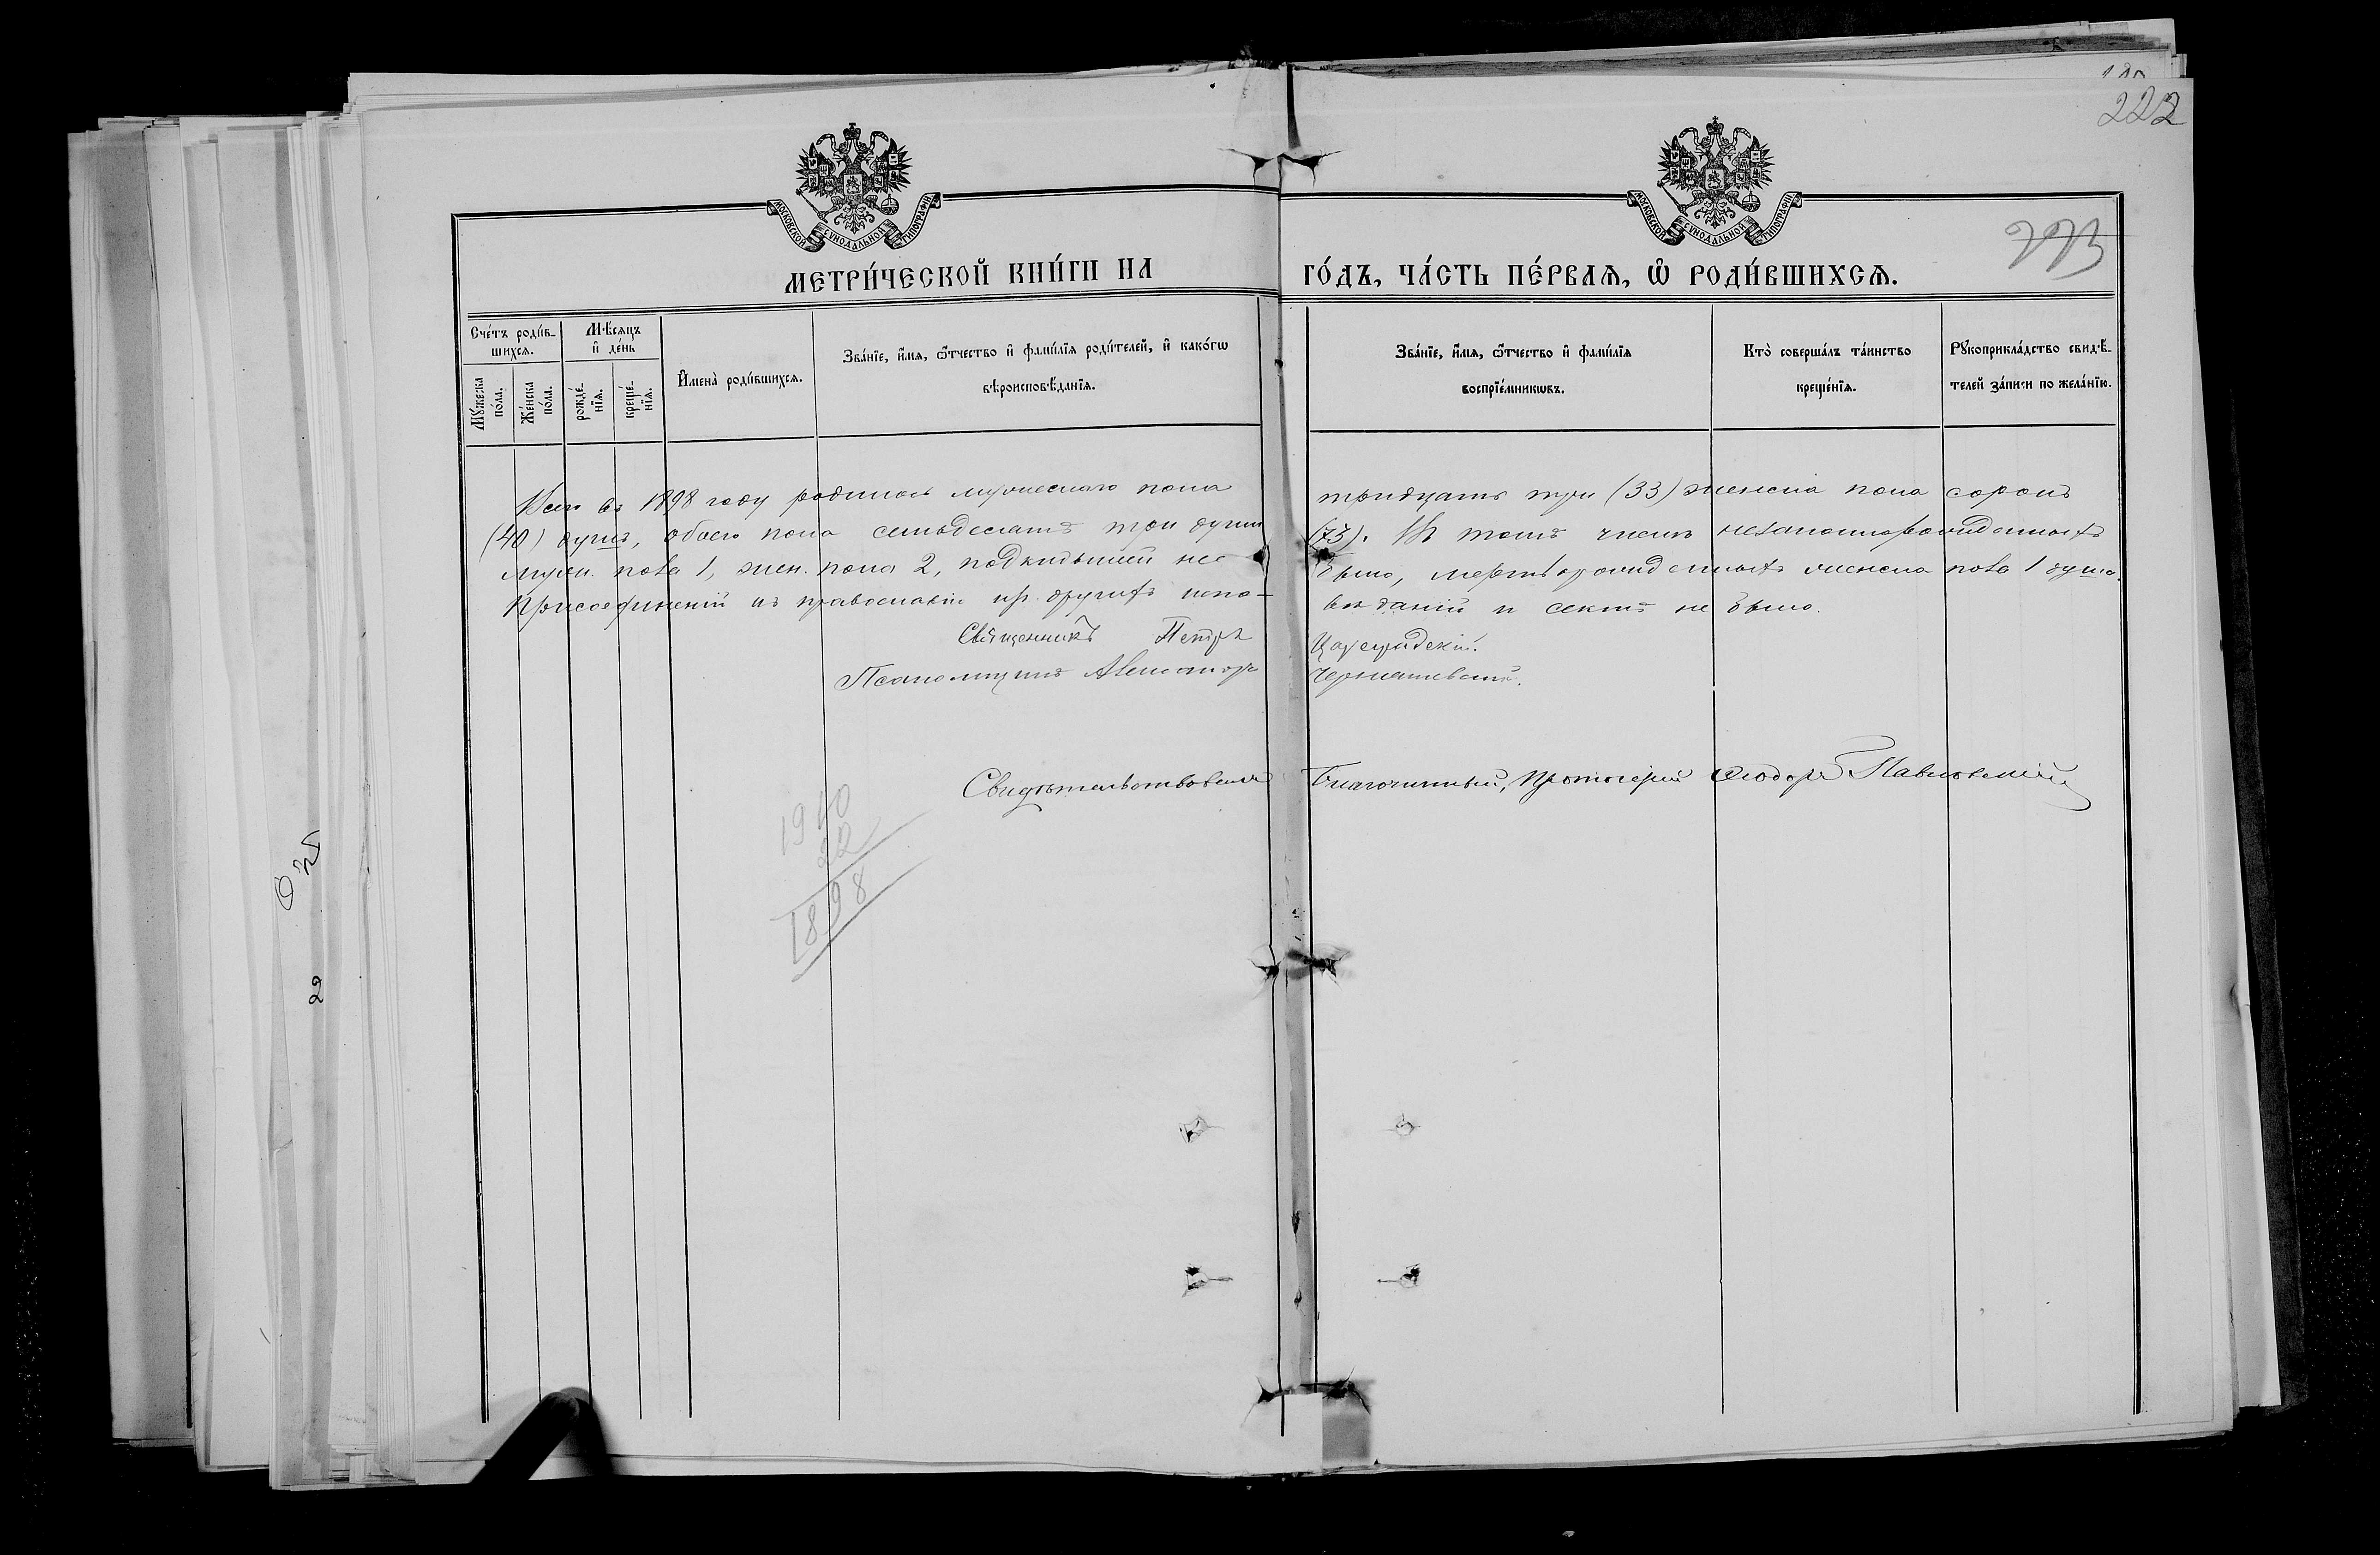 222
773
МОСКОВСКОЙ СѴНОДАЛЬНОЙ ТИПОГРАФІИ
МОСКОВСКОЙ СѴНОДАЛЬНОЙ ТИПОГРАФІИ
МЕТРИ́ЧЕСКОЙ КНИ́ГИ НА ГО́ДЪ, ЧА́СТЬ ПЕ́РВАѦ, Ѡ҆ РОДИ́ВШИХСѦ.
Сче́тъ роди́в-
шихсѧ.
Мѣ́сяцъ
и҆ де́нь
Мꙋ́жеска
по́ла.
Же́нска
по́ла.
рожде́-
нїѧ.
креще́-
нїѧ.
И҆мена̀ роди́вшихсѧ.
Зва́нїе, и҆́мѧ, ѻ҆́тчество и҆ фамі́лїѧ роди́телей, и҆ како́гѡ
вѣроисповѣ́данїѧ.
Зва́нїе, и҆́мѧ, ѻ҆́тчество и҆ фамі́лїѧ
воспрїе́мникѡвъ.
Кто̀ соверша́лъ та́инство
креще́нїѧ.
Рꙋкоприкла́дство свидѣ́-
телей за́писи по жела́нїю.
Всего въ 1898 году родилось мужескаго пола тридцать три (33) женска пола сорокъ
(40) душъ, обоего пола семьдесятъ три души (73). Въ томъ числѣ незаконнорожденныхъ
мужск. пола 1, жен. пола 2, подкидышей не было, мертворожденныхъ женска пола 1 душа.
Присоединеній къ православію изъ другихъ испо- вѣданій и сектъ не было.
Священникъ Петръ
Псаломщикъ Александръ Чернышевскій.
Свидѣтельствовалъ Благочинный, Протоіерей Ѳеодоръ Павловскій
19
22
1898